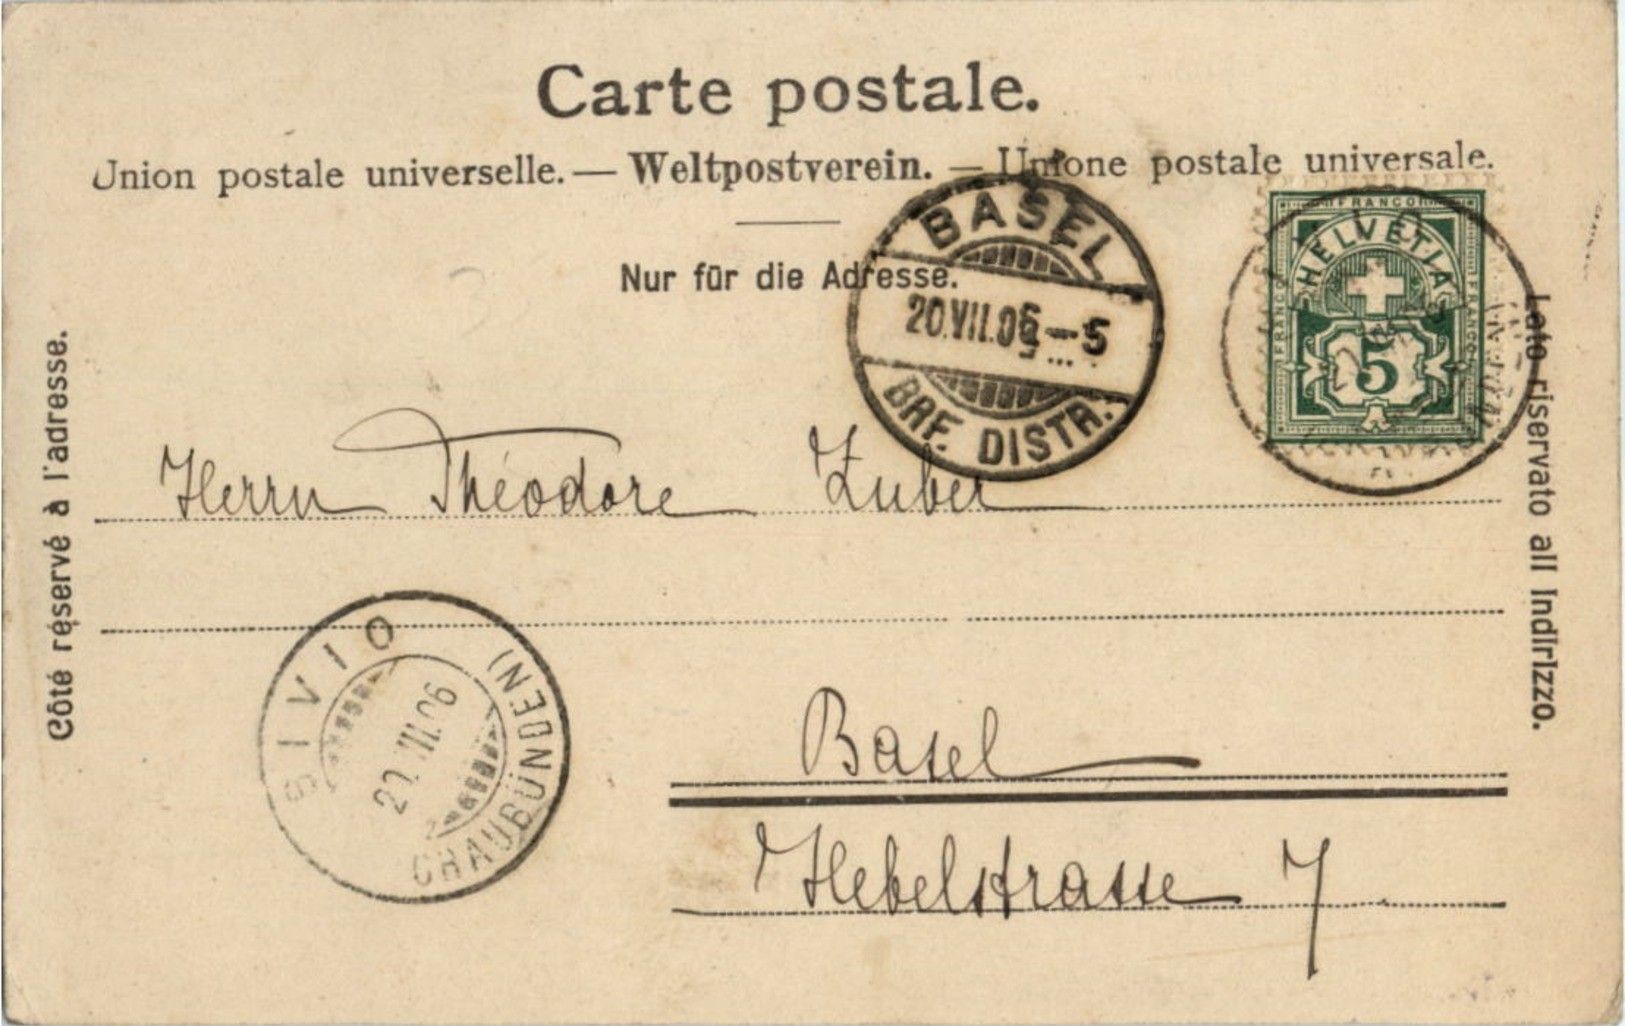 Carte postale.
Union postale universelle. — Weltpostverein. — Unione postale universale.
Nur für die Adresse.
Côté réservé à l'adresse.
Lato riservato all Indirizzo.
BASEL
20.VII.06 — 5
BRF. DISTR.
FRANCO
HELVETIA
FRANCO
FRANCO
5
Herrn Théodore Zuber
SIVIO
20.VII.06
GRAUBÜNDEN)
Basel
Hebelstrasse 7